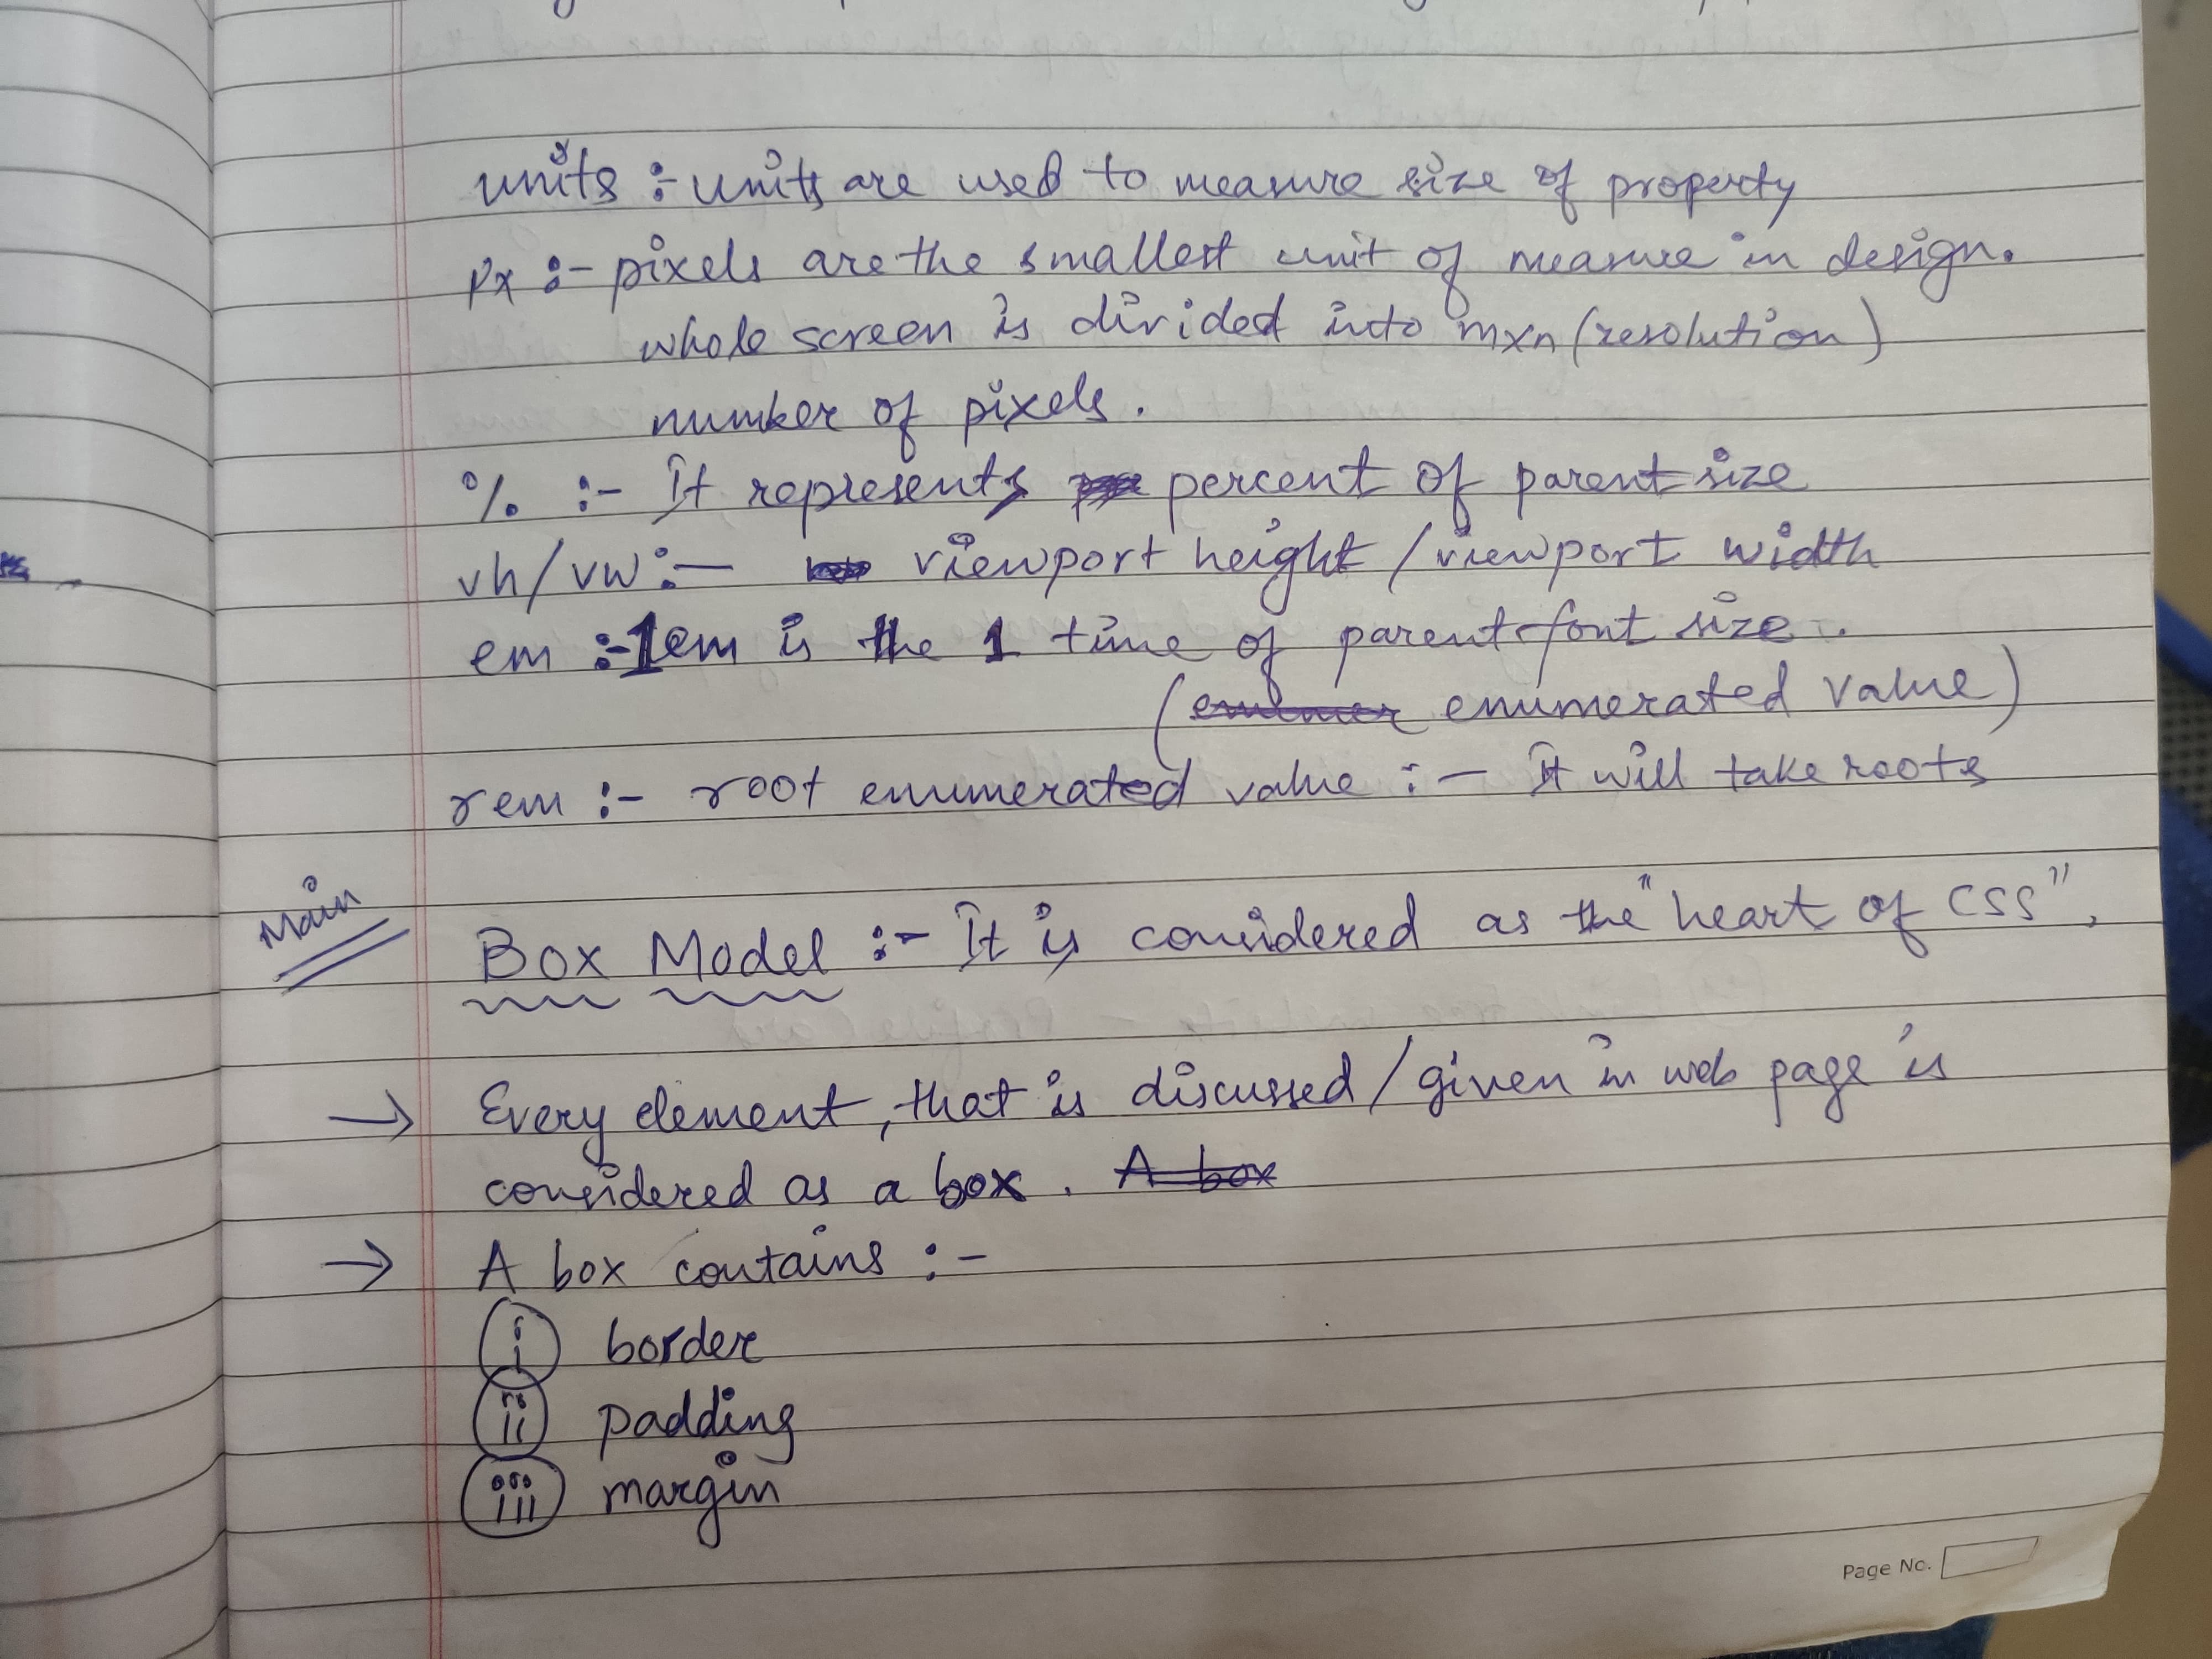 units :- units are used to measure size of property
Px :- pixels are the smallest unit of measure in design.
whole screen is divided into mxn (resolution)
number of pixels.
% :- It represents percent of parent size
vh/vw :- viewport height / viewport width
em :- 1em is the 1 time of parent font size.
(enumerated value)
rem :- root enumerated value :- It will take roots
Main
Box Model :- It is considered as the "heart of CSS",
→ Every element, that is discussed / given in web page is
considered as a box. A box
→ A box contains :-
i border
ii padding
iii margin
Page No.